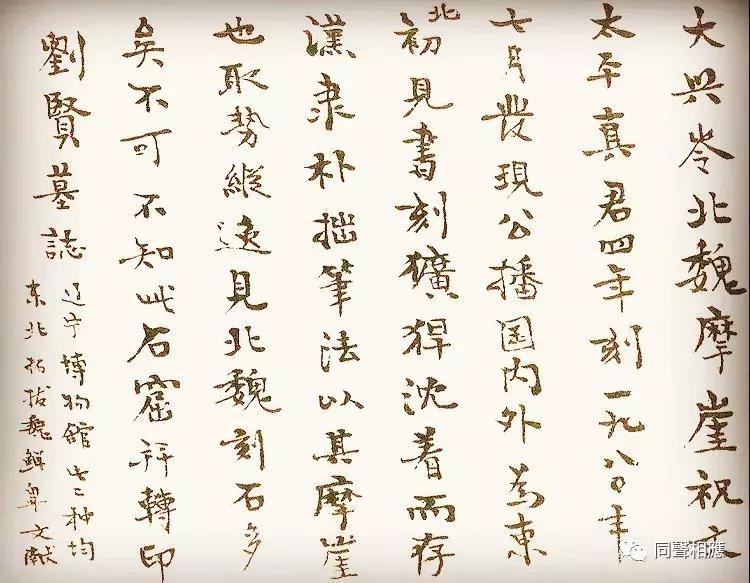 大兴岺北魏摩崖祝文
太平真君四年刻一九八〇年
七月發現公播国内外为東
北初見書刻獷猂沈着而存
漢隶朴拙筆法以其摩崖
也取勢縱逸見北魏刻石多
矣不可不知此石窟并轉印
劉賢墓誌
辽宁博物館此二种均
东北拓拔魏鮮卑文献
同聲相應